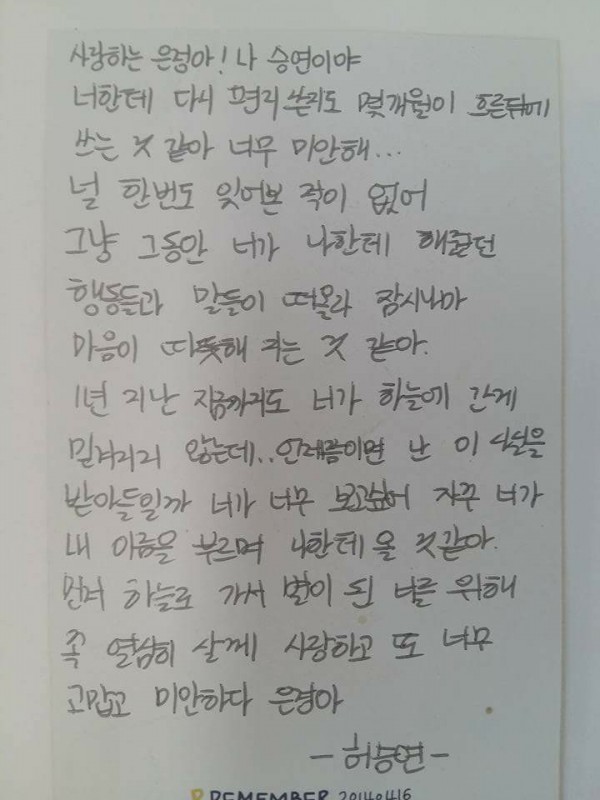 사랑하는 은정아! 나 승연이야
너한테 다시 편지 쓴지도 몇개월이 흐른뒤에
쓰는 것 같아 너무 미안해...
널 한번도 잊어본 적이 없어
그냥 그동안 너가 나한테 해줬던
행동들과 말들이 떠올라 잠시나마
마음이 따뜻해 지는 것 같아.
1년 지난 지금까지도 너가 하늘에 간게
믿겨지지 않는데.. 언제쯤이면 난 이 사실을
받아들일까 너가 너무 보고싶어 자꾸 너가
내 이름을 부르며 나한테 올 것같아.
먼저 하늘로 가서 별이 된 너를 위해
꼭 열심히 살께 사랑하고 또 너무
고맙고 미안하다 은정아
-허승연-
REMEMBER 20140416